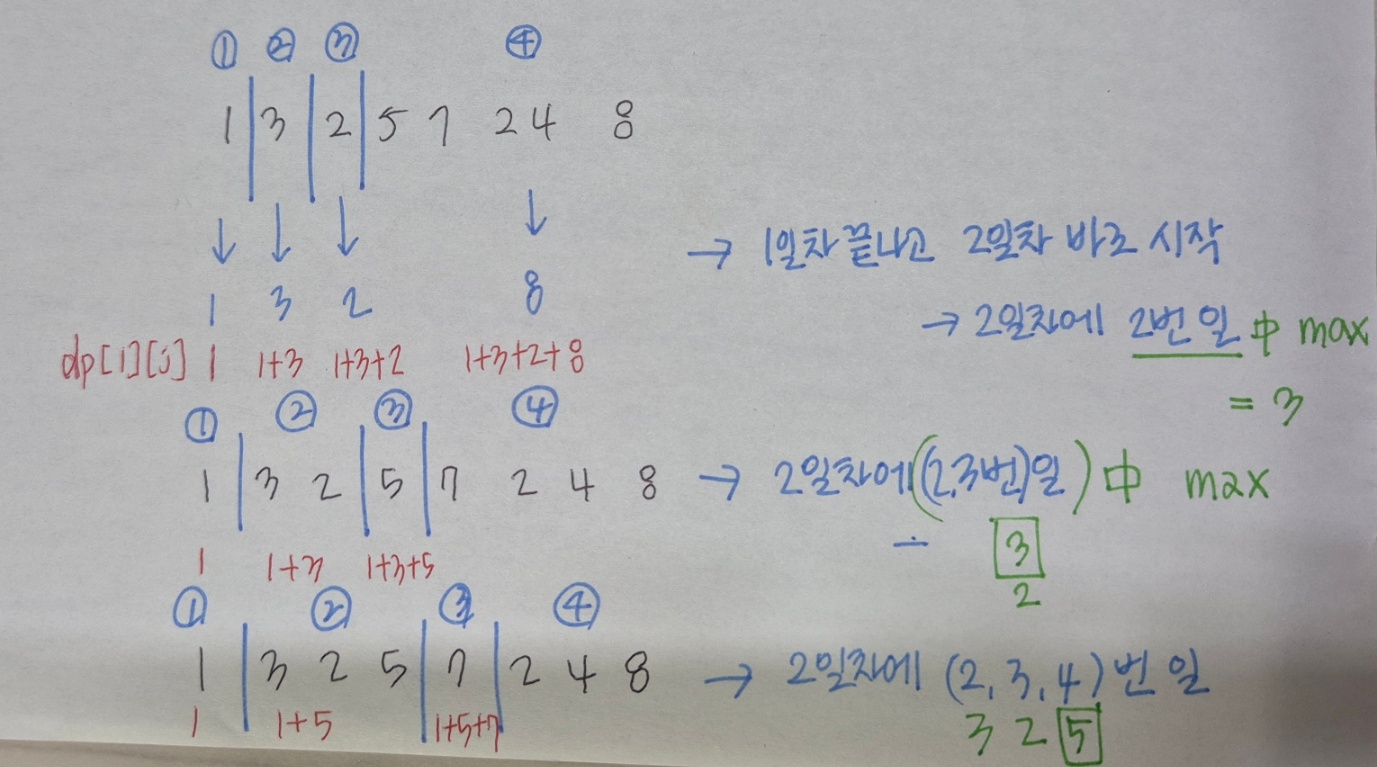 ① ② ③ ④
1 3 2 5 7 2 4 8
→ 1일차 끝나고 2일차 바로 시작
1 3 2 8
→ 2일차에 2번 일 中 max
dp[i][j] 1 1+3 1+3+2 1+3+2+8
= 3
① ② ③ ④
1 3 2 5 7 2 4 8 → 2일차에 ((2,3번)일) 中 max
3
1 1+3 1+3+5
2
① ② ③ ④
1 3 2 5 7 2 4 8 → 2일차에 (2, 3, 4) 번 일
1 1+5 1+5+7
3 2 5